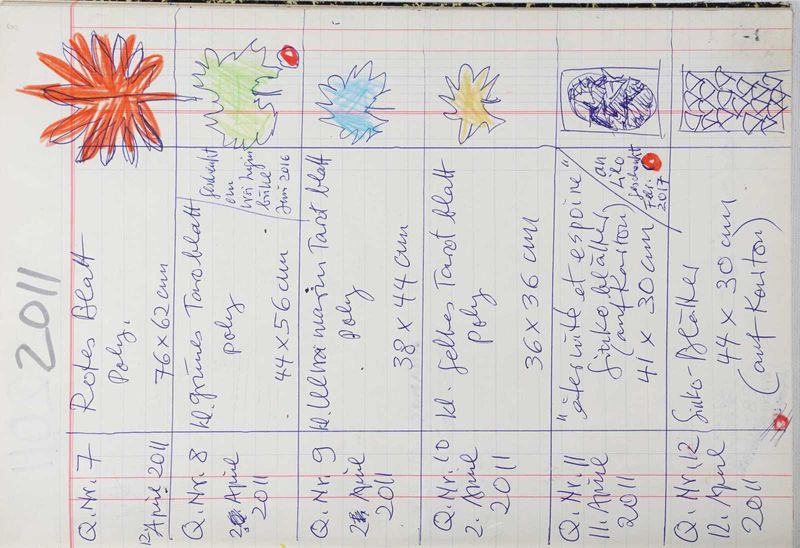 2011
Q.Nr. 7
12 April 2011
Rotes Blatt
Poly.
76 x 62 cm
Q.Nr. 8
April
2011
kl. grünes Taroblatt
poly
44 x 56 cm
geschenkt
Juni 2016
Q.Nr. 9
April
2011
kl. Ultramarin Tarotblatt
poly
38 x 44 cm
Q.Nr. 10
2. April
2011
kl. gelbes Tarotblatt
poly
36 x 36 cm
Q.Nr. 11
11. April
2011
"éternité et espoire"
Ginkoblätter
(auf Karton)
41 x 30 cm
an
Lilo
geschenkt
Febr.
2017
Q.Nr. 12
12. April
2011
Ginko-Blätter
44 x 30 cm
(auf Karton)